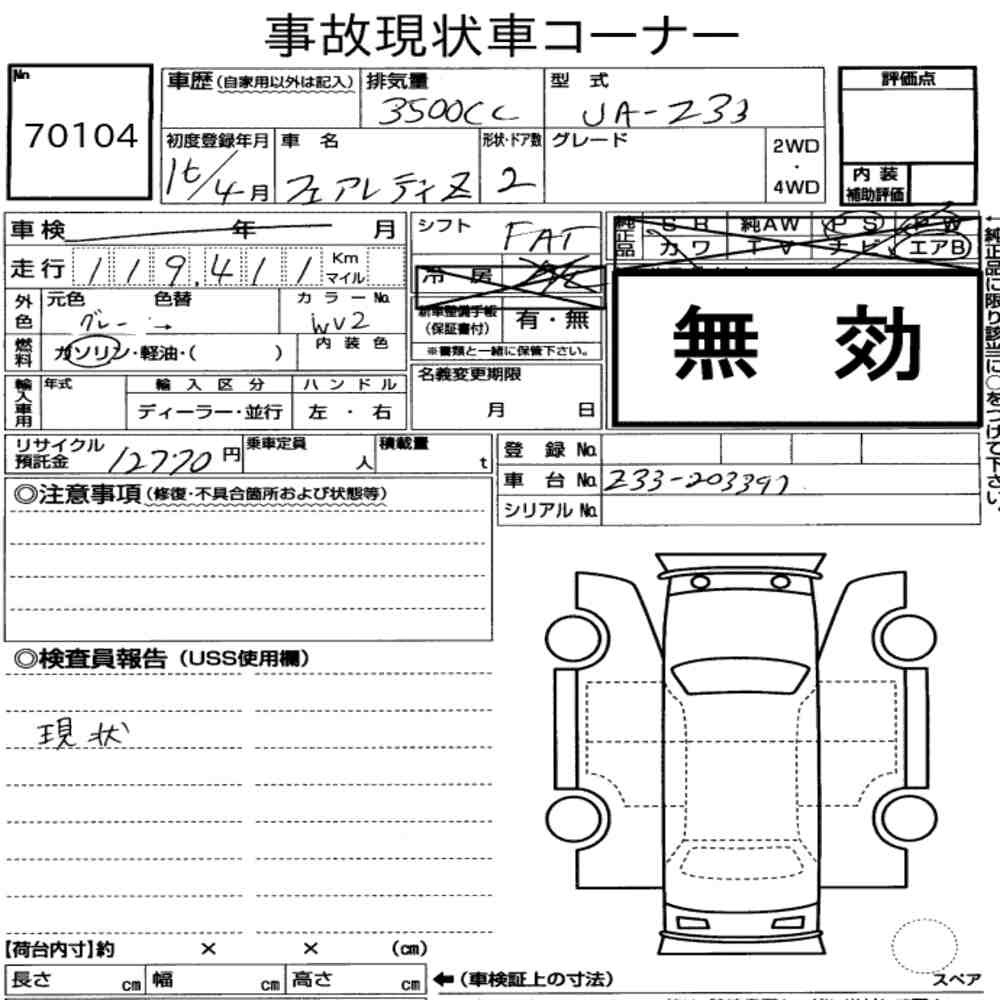 事故現状車コーナー
No. 70104
車歴(自家用以外は記入) 排気量 3500CC 型式 UA-Z33
評価点
初度登録年月 16/4月 車名 フェアレディZ 形状・ドア数 2 グレード 2WD・4WD
内装補助評価
車検 年 月
走行 119,411 Km マイル
シフト FAT
純正品 SR 純AW PS PW
カワ TV ナビ エアB
冷房
外色 元色 グレー → 色替 カラーNo. WV2
燃料 ガソリン・軽油・( ) 内装色
新車整備手帳(保証書付) 有・無
※書類と一緒に保管下さい。
無効
純正品に限り該当に○をつけて下さい。
輸入車用 年式 輸入区分 ディーラー・並行 ハンドル 左・右
名義変更期限 月 日
リサイクル預託金 12770円 乗車定員 人 積載量 t
登録No.
車台No. Z33-203397
シリアルNo.
◎注意事項(修復・不具合箇所および状態等)
◎検査員報告(USS使用欄)
現状
【荷台内寸】約 × × (cm)
長さ cm 幅 cm 高さ cm ←(車検証上の寸法)
スペア